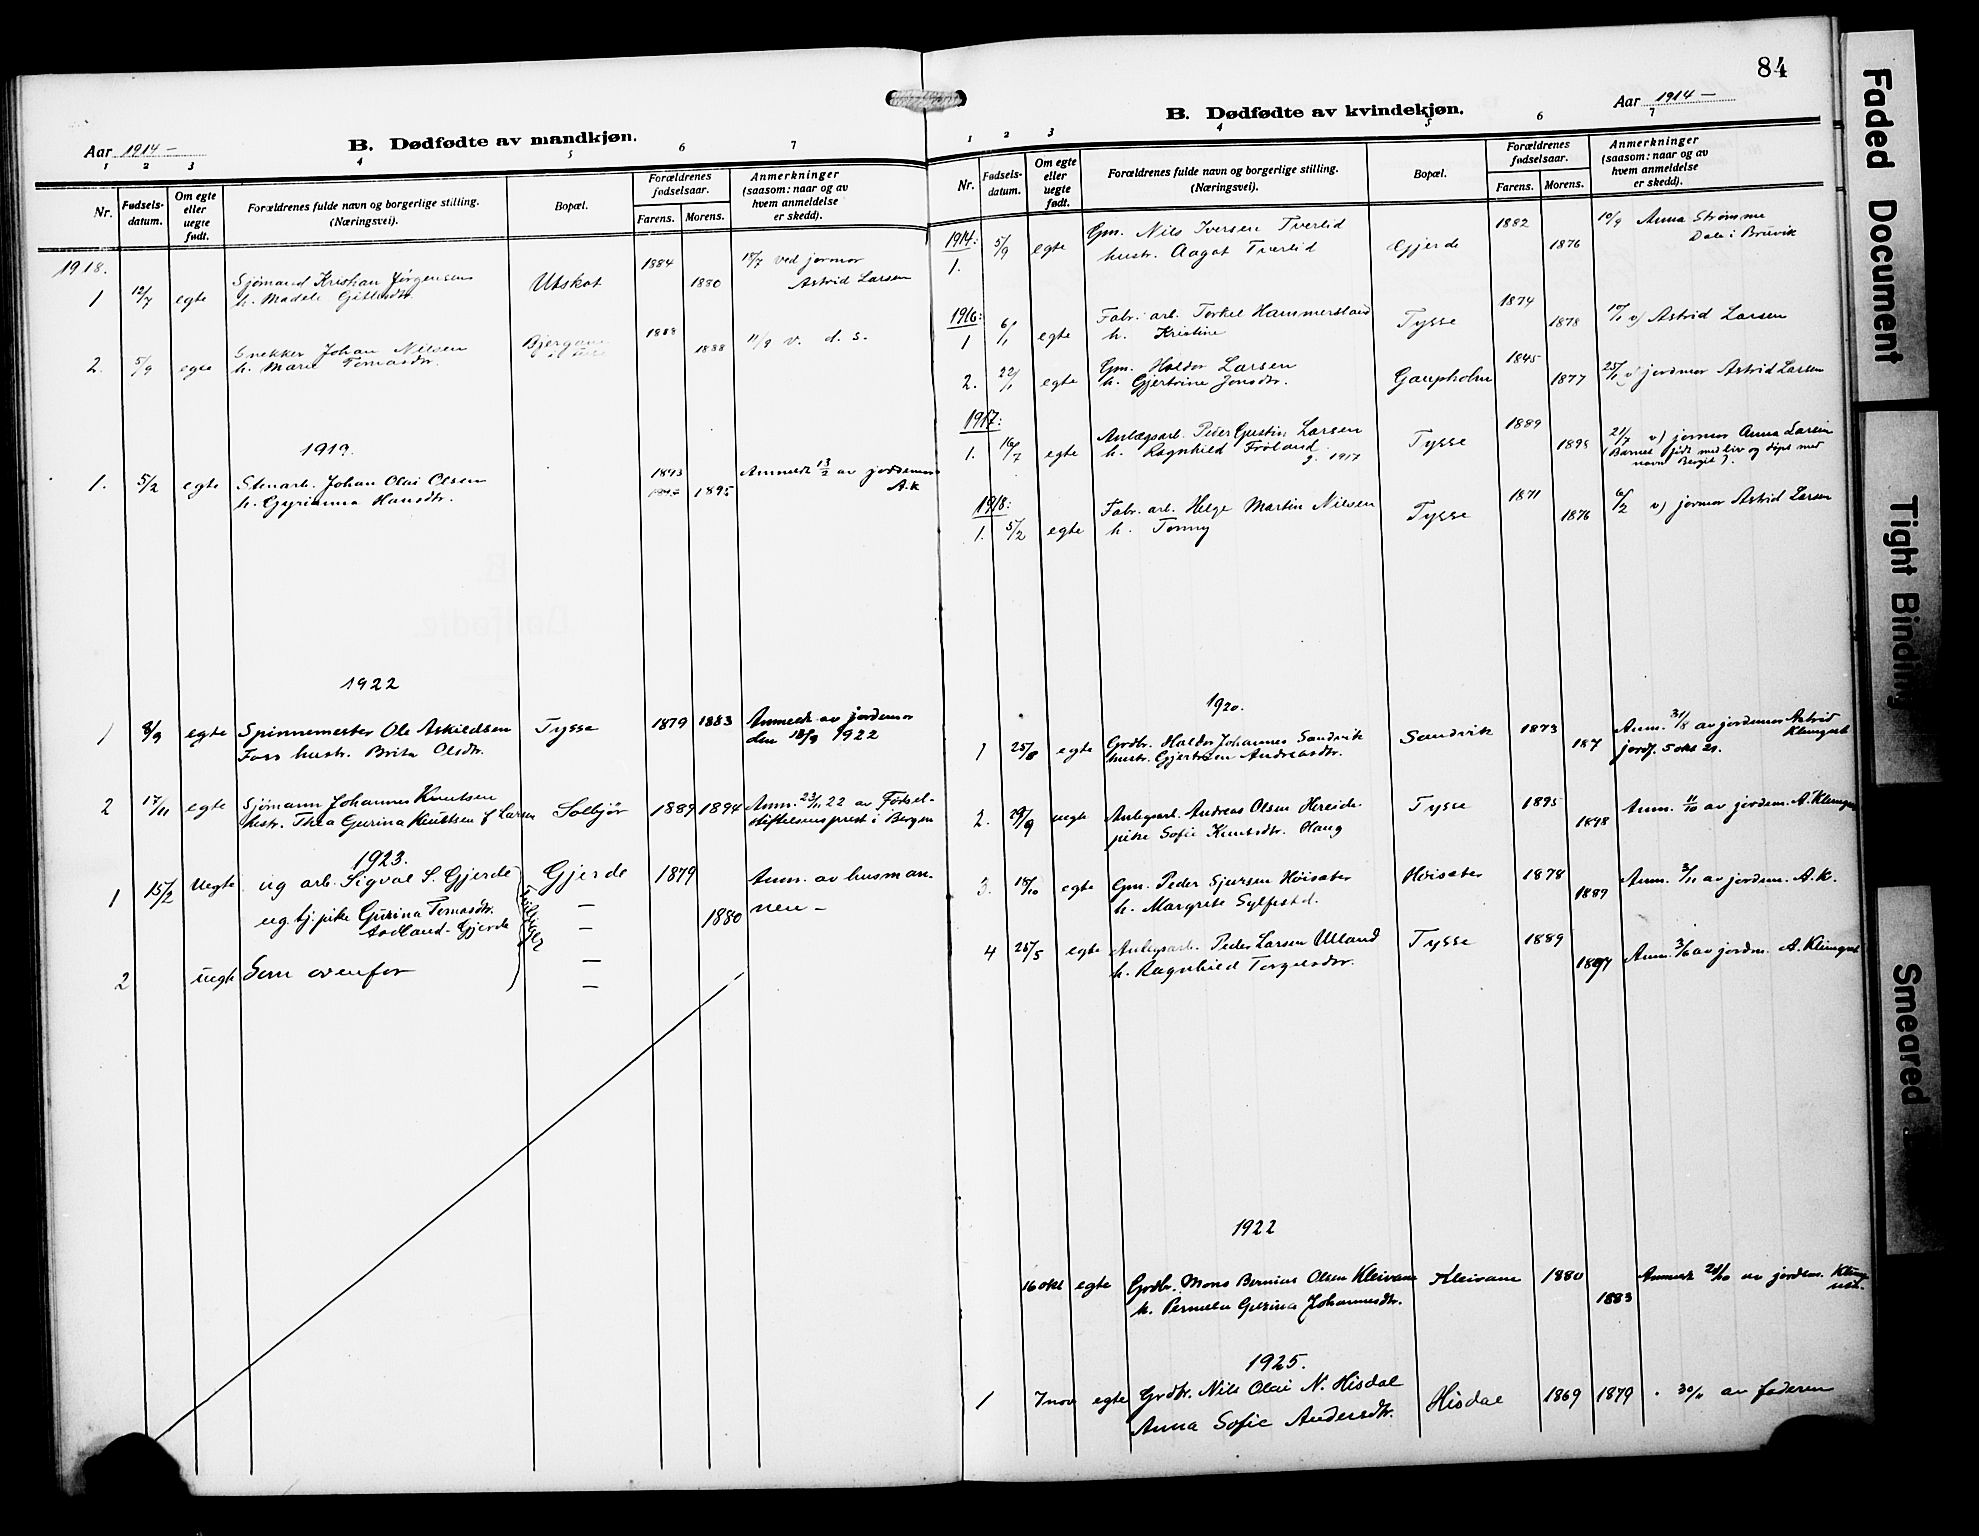 Aar 1914 —
B. Dødfødte av mandkjøn.
1 2 3 4 5 6 7
Nr.
Fødsels-
datum.
Om egte
eller
uegte
født.
Forældrenes fulde navn og borgerlige stilling.
(Næringsvei).
Bopæl.
Forældrenes
fødselsaar.
Farens. Morens.
Anmerkninger
(saasom: naar og av
hvem anmeldelse
er skedd).
1918.
1 12/7 egte Sjömand Kristian Jørgensen Utskot 1884 1880 ved jormor
h. Madeli Gitlesdtr. Astrid Larsen
2. 5/9 egte Snekker Johan Nilsen 1888 1888 11/9 v. d. s.
h. Marie Tomasdtr.
1919.
1. 5/2 egte Stenarb. Johan Olai Olsen 1893 1895 Anmeldt 13/2 av jordemor
h. Gyrianna Hansdtr. A.K
1922
1 8/9 egte Spinnemester Ole Askildsen Tysse 1879 1883 Anmeldt av jordemor
Foss hustr. Brita Olsdtr. den 18/9 1922
2 17/11 egte Sjömann Johannes Knutsen Solbjör 1889 1894 Anm. 23/11 22 av Födsel-
hustr. Thea Gurina Knutsen f Larsen stiftelsens prest i Bergen
1923.
1 15/2 Uegte ug arb. Sigval S. Gjerde Gjerde 1879 Anm. av husman-
ug. tj. pike Gurina Tomasdtr. — 1880 nen —
Aadland-Gjerde —
2 uegte Som ovenfor —
—
84
Aar 1914 —
B. Dødfødte av kvindekjøn.
1 2 3 4 5 6 7
Nr.
Fødsels-
datum.
Om egte
eller
uegte
født.
Forældrenes fulde navn og borgerlige stilling.
(Næringsvei).
Bopæl.
Forældrenes
fødselsaar.
Farens. Morens.
Anmerkninger
(saasom: naar og av
hvem anmeldelse
er skedd).
1914:
1. 5/9 egte Gm. Nils Iversen Tverlid Gjerde 1882 1876 10/9 Anna Strømme
hustr. Aagot Tverlid Dale i Bruvik
1916:
1 6/1 egte Fabr. arb. Torkel Hammersland Tysse 1874 1878 v) Astrid Larsen
h. Kristine
2. 22/1 egte Gm. Haldor Larsen Gaupholm 1845 1877 25/1 v) jordmor Astrid Larsen
h. Gjertrine Jonsdtr.
1917:
1. 16/7 egte Anlægsarb. Peder Gustin Larsen Tysse 1889 1895 21/7 v) jormor Anna Larsen
h. Ragnhild Frøland (Barnet født med liv og døpt med
g. 1917 navn Bergit).
1918:
1. 5/2 egte Fabr. arb. Helge Martin Nilsen Tysse 1871 1876 6/2 v) jormor Astrid Larsen
h. Tomny
1920.
1 25/8 egte Grdbr. Haldor Johannes Sandvik Sandvik 1873 187 Anm. 31/8 av jordemor Astrid
hustr. Gjertrsen Andreasdtr. Klungset
jordf. 5 okt 21.
2. 29/9 uegte Anlegsarb. Andreas Olsen Hereide Tysse 1895 1898 Anm. 11/10 av jordem. A. Klungset
pike Sofie Knutsdtr. Haug
3. 18/10 egte Gm. Peder Sjursen Höisæter Höisæter 1878 1887 Anm. 3/11 av jordem. A.K.
h. Margrete Sylfestd.
4 25/5 egte Anlegsarb. Peder Larsen Ulland Tysse 1889 1897 Anm. 3/6 av jordm. A. Klungset
h. Ragnhild Torgelsdtr.
1922
16 okt egte Grdbr. Mons Bernius Olsen Kleivane Kleivane 1880 1883 Anmeldt 28/10 av jordem. Klung-
h. Pernella Gurina Johannesdtr. set.
1925.
1 7 nov egte Grdbr. Nils Olai N. Hisdal Hisdal 1869 1879 30/11 av faderen
Anna Sofie Andersdtr.
Faded Document
Tight Binding
Smeared